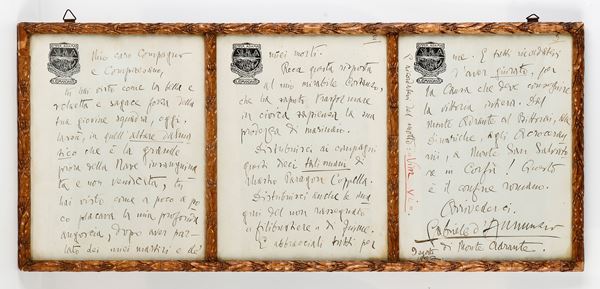 Mio caro Compagno
e Compagnone,
tu hai visto come la bella e
sagace forza della
tua giovine squadra, oggi,
lassù, in quell'altare dalma-
tico che è la grande
prora della Nave insanguina-
ta e non vendicata, tu
hai visto come a poco a po-
co placava la mia profonda
angoscia, dopo aver par-
lato dei miei martiri e de'
miei morti.
Reca questa risposta
al mio mirabile
che ha saputo trasformare
in civica sapienza la sua
prodezza di marinaio.
Distribuisci ai compagni
questi dieci talismani di
Mastro Paragon Coppella.
Distribuisci anche le due
del non rassegnato
"filibustiere" di Fiume.
E abbracciali tutti per
me. E tutti ricordatevi
d'aver giurato, per
la Causa che deve conseguire
la vittoria intiera. Dal
Monte Adrante al Bitorai, alle
Dinariche, agli Acrocerau-
ni, a Monte San Salvato-
re in Corfù! Questo
è il confine romano.
Arrivederci.
Gabriele d'Annunzio
di Monte Adrante.